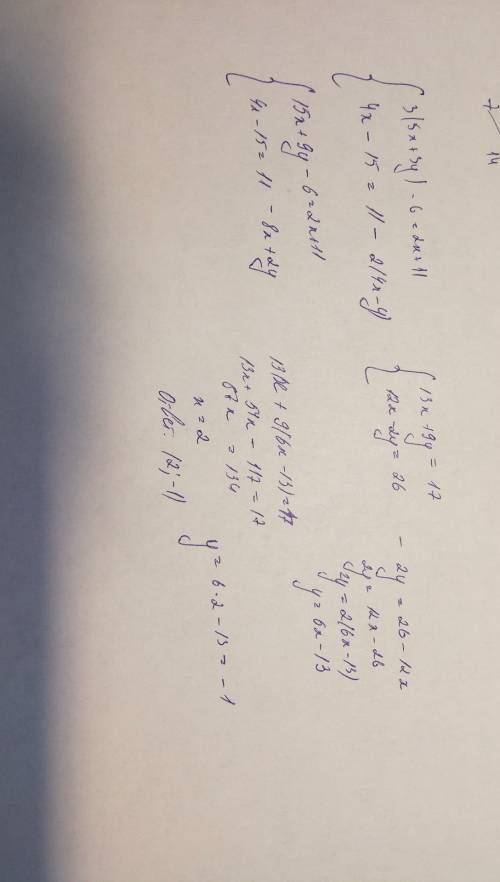 7 14
{ 3(5x+3y) - 6 = 2x+11
4x - 15 = 11 - 2(4x-y)
{ 15x + 9y - 6 = 2x+11
4x - 15 = 11 - 8x + 2y
{ 13x + 9y = 17
12x - 2y = 26
- 2y = 26 - 12x
2y = 12x - 26
2y = 2(6x - 13)
y = 6x - 13
13x + 9(6x - 13) = 17
13x + 54x - 117 = 17
67x = 134
x = 2
y = 6·2 - 13 = -1
Ответ: (2; -1)